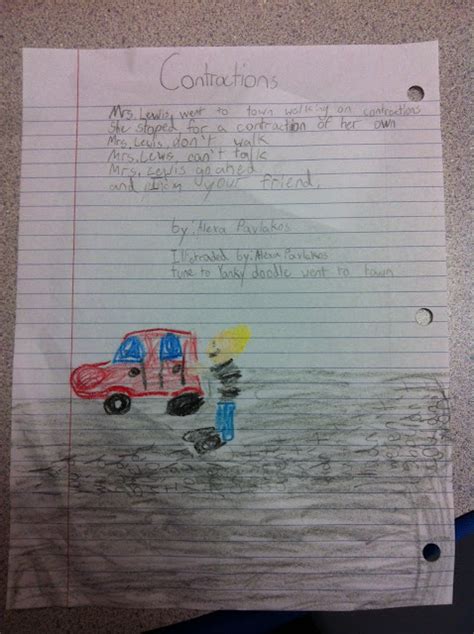 Contractions
Mrs. Lewis went to town walking on contractions
She stoped for a contraction of her own
Mrs. Lewis, don't walk
Mrs. Lewis, can't talk
Mrs. Lewis
and your friend.
by: Alexa Pavlakos
by: Alexa Pavlakos
tune to Yanky doodle went to town